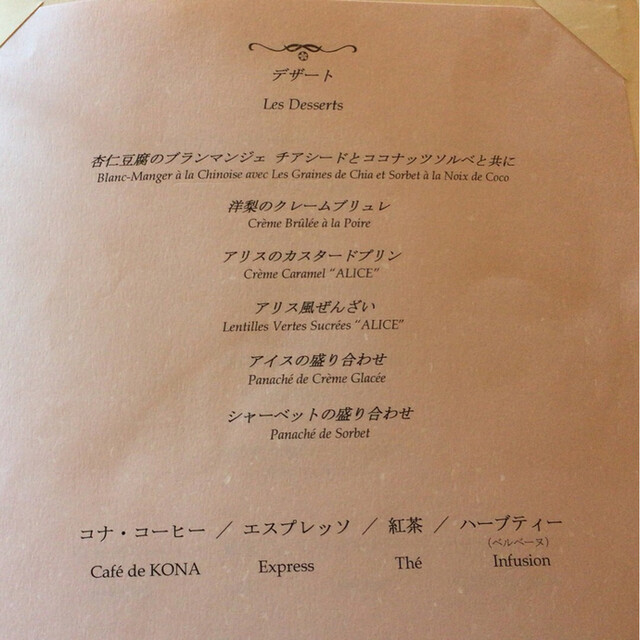 デザート
Les Desserts
杏仁豆腐のブランマンジェ チアシードとココナッツソルベと共に
Blanc-Manger à la Chinoise avec Les Graines de Chia et Sorbet à la Noix de Coco
洋梨のクレームブリュレ
Crème Brûlée à la Poire
アリスのカスタードプリン
Crème Caramel “ALICE”
アリス風ぜんざい
Lentilles Vertes Sucrées “ALICE”
アイスの盛り合わせ
Panaché de Crème Glacée
シャーベットの盛り合わせ
Panaché de Sorbet
コナ・コーヒー ／ エスプレッソ ／ 紅茶 ／ ハーブティー
(ベルベーヌ)
Café de KONA Express Thé Infusion